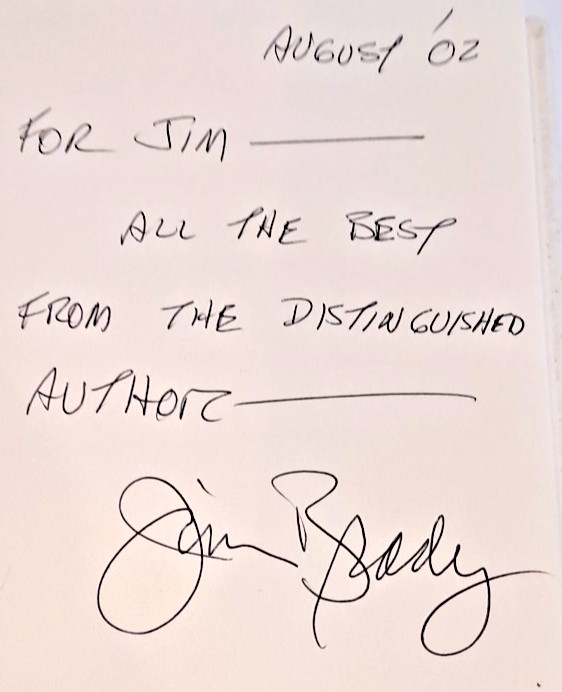 AUGUST '02
FOR JIM —
ALL THE BEST
FROM THE DISTINGUISHED
AUTHOR —
Jim Brady